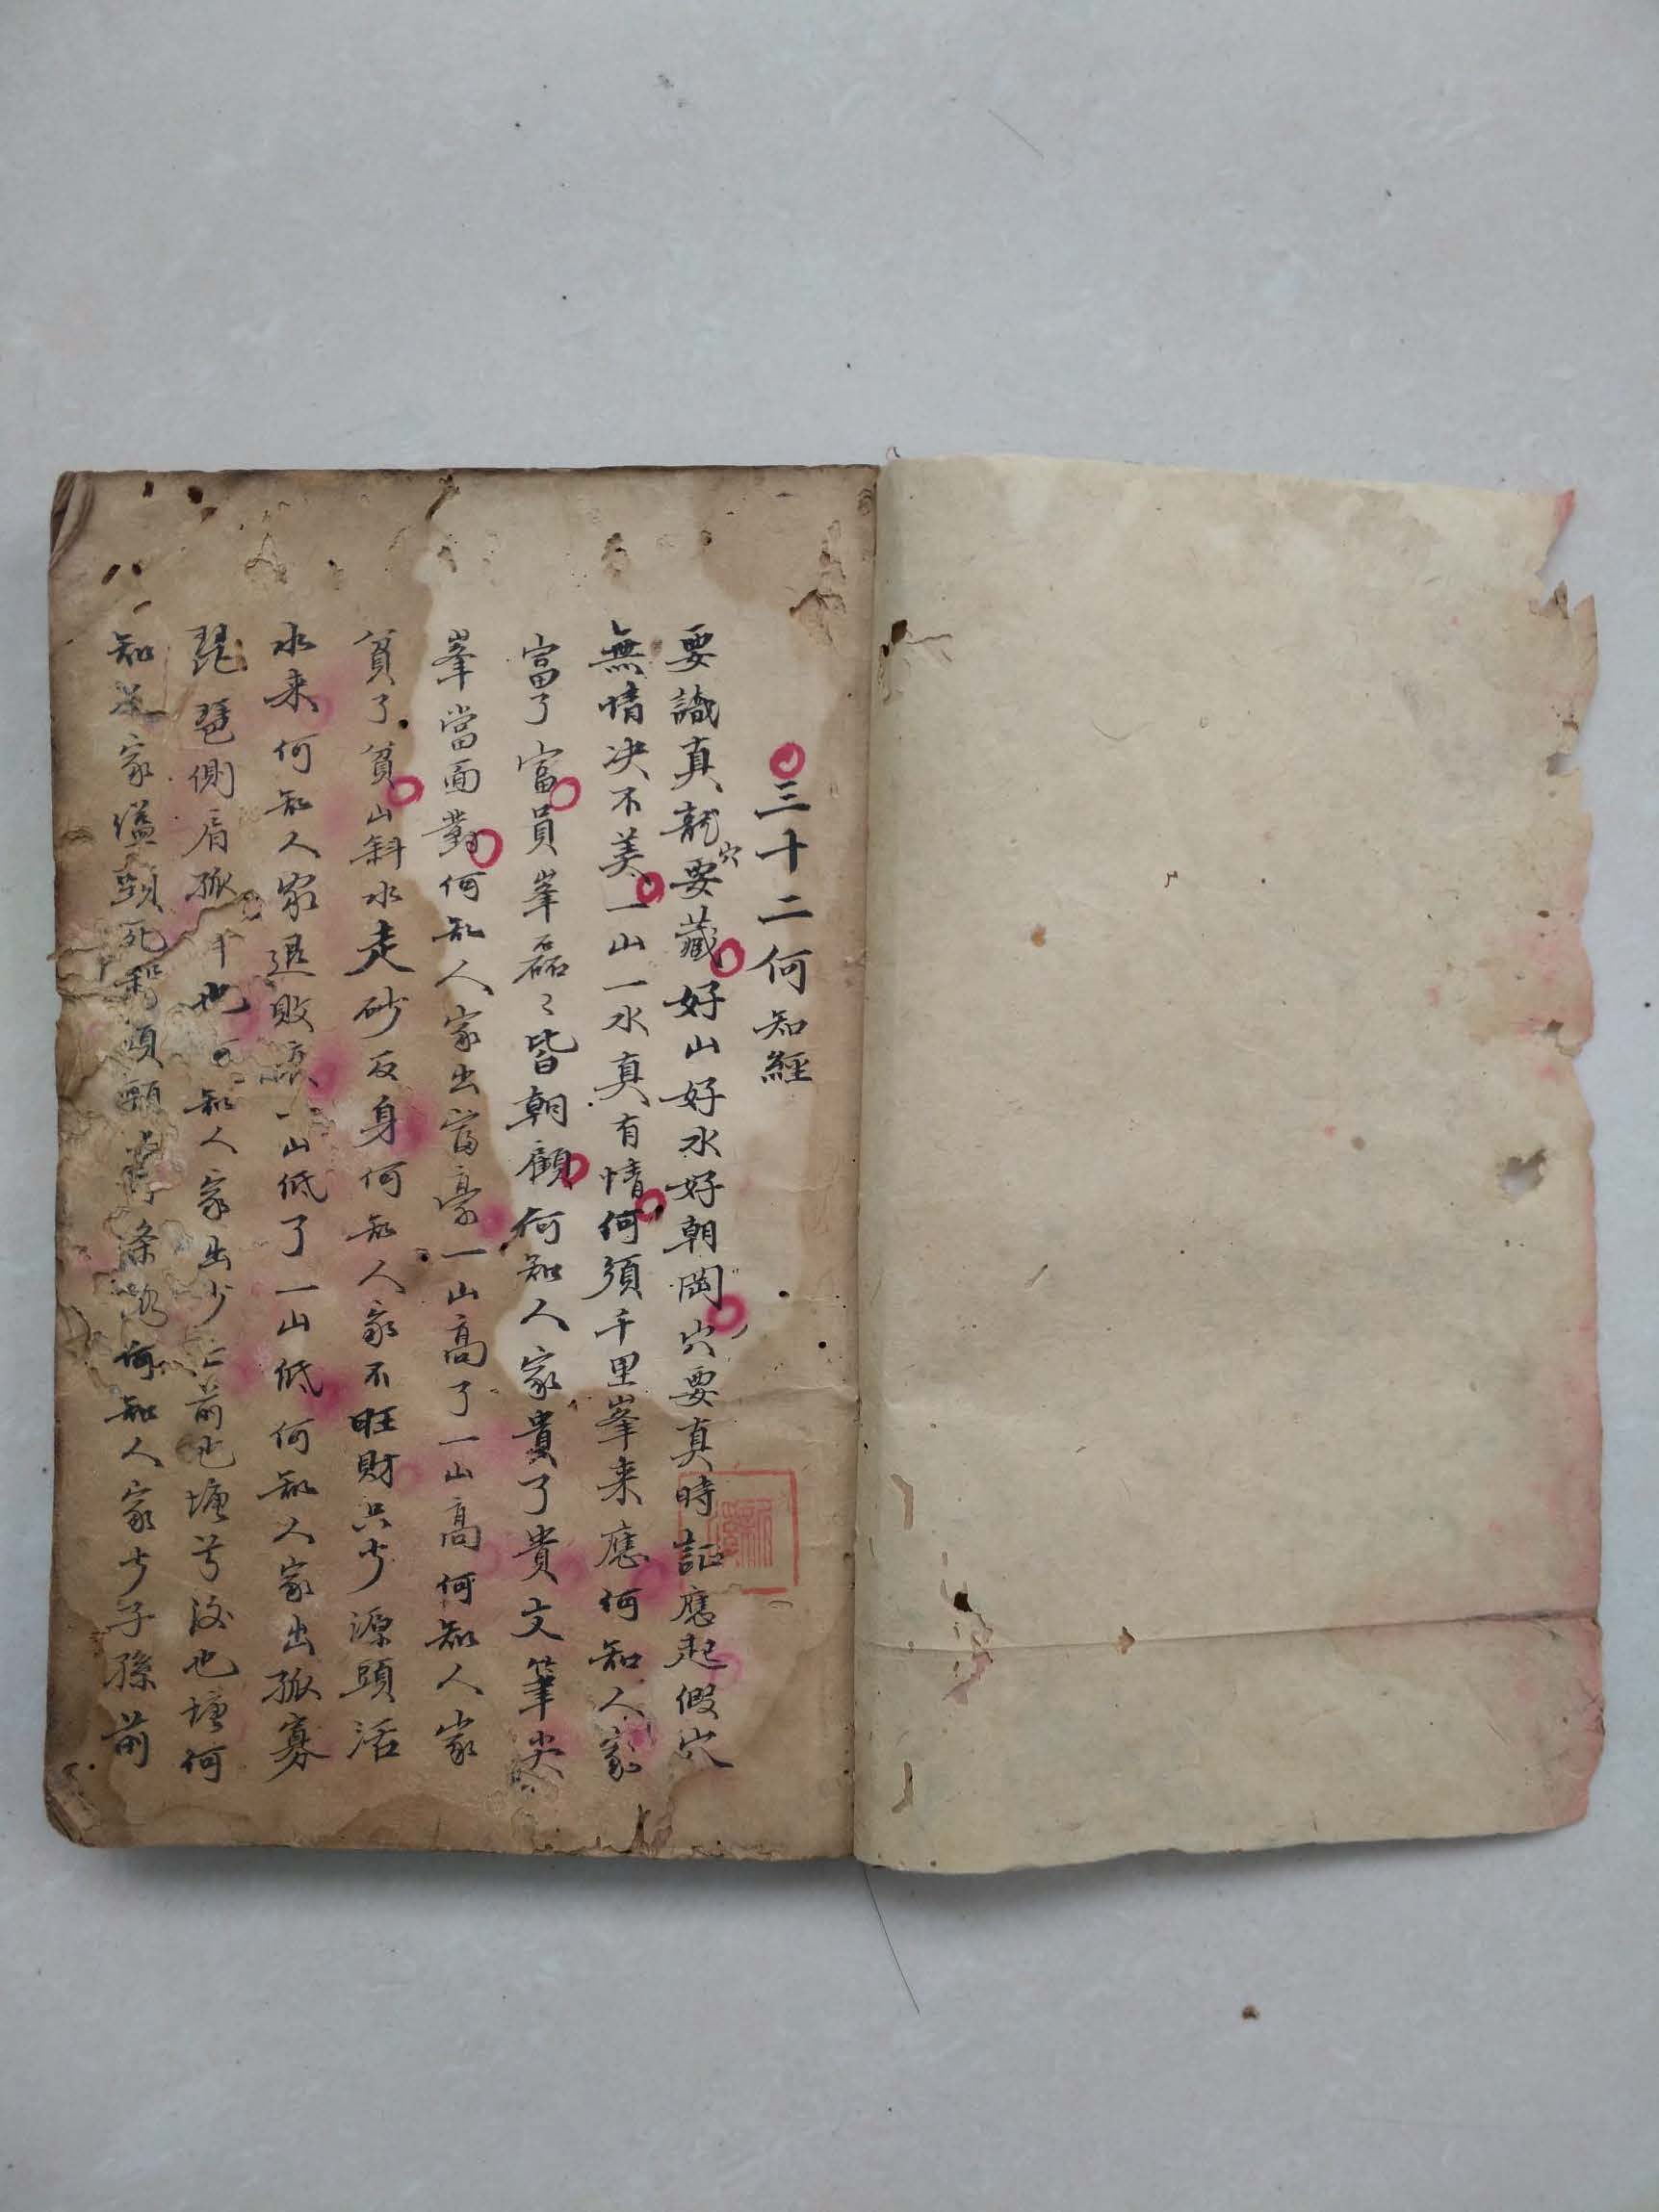 三十二何知經
要識真龍穴要藏好山好水好朝岡穴要真時証應起假穴
無情决不美一山一水真有情何須千里峯来應何知人家
富了富員峯磊〻皆朝顧何知人家貴了貴文筆尖
峯當面對何知人家出富豪一山高了一山高何知人家
貧了貧山斜水走砂反身何知人家不旺財只少源頭活
水来何知人家退敗一山低了一山低何知人家出孤寡
琵琶側肩孤也何知人家出少亡前也塘兮後也塘何
知人家縊頸死頭頸有條路何知人家少子孫前